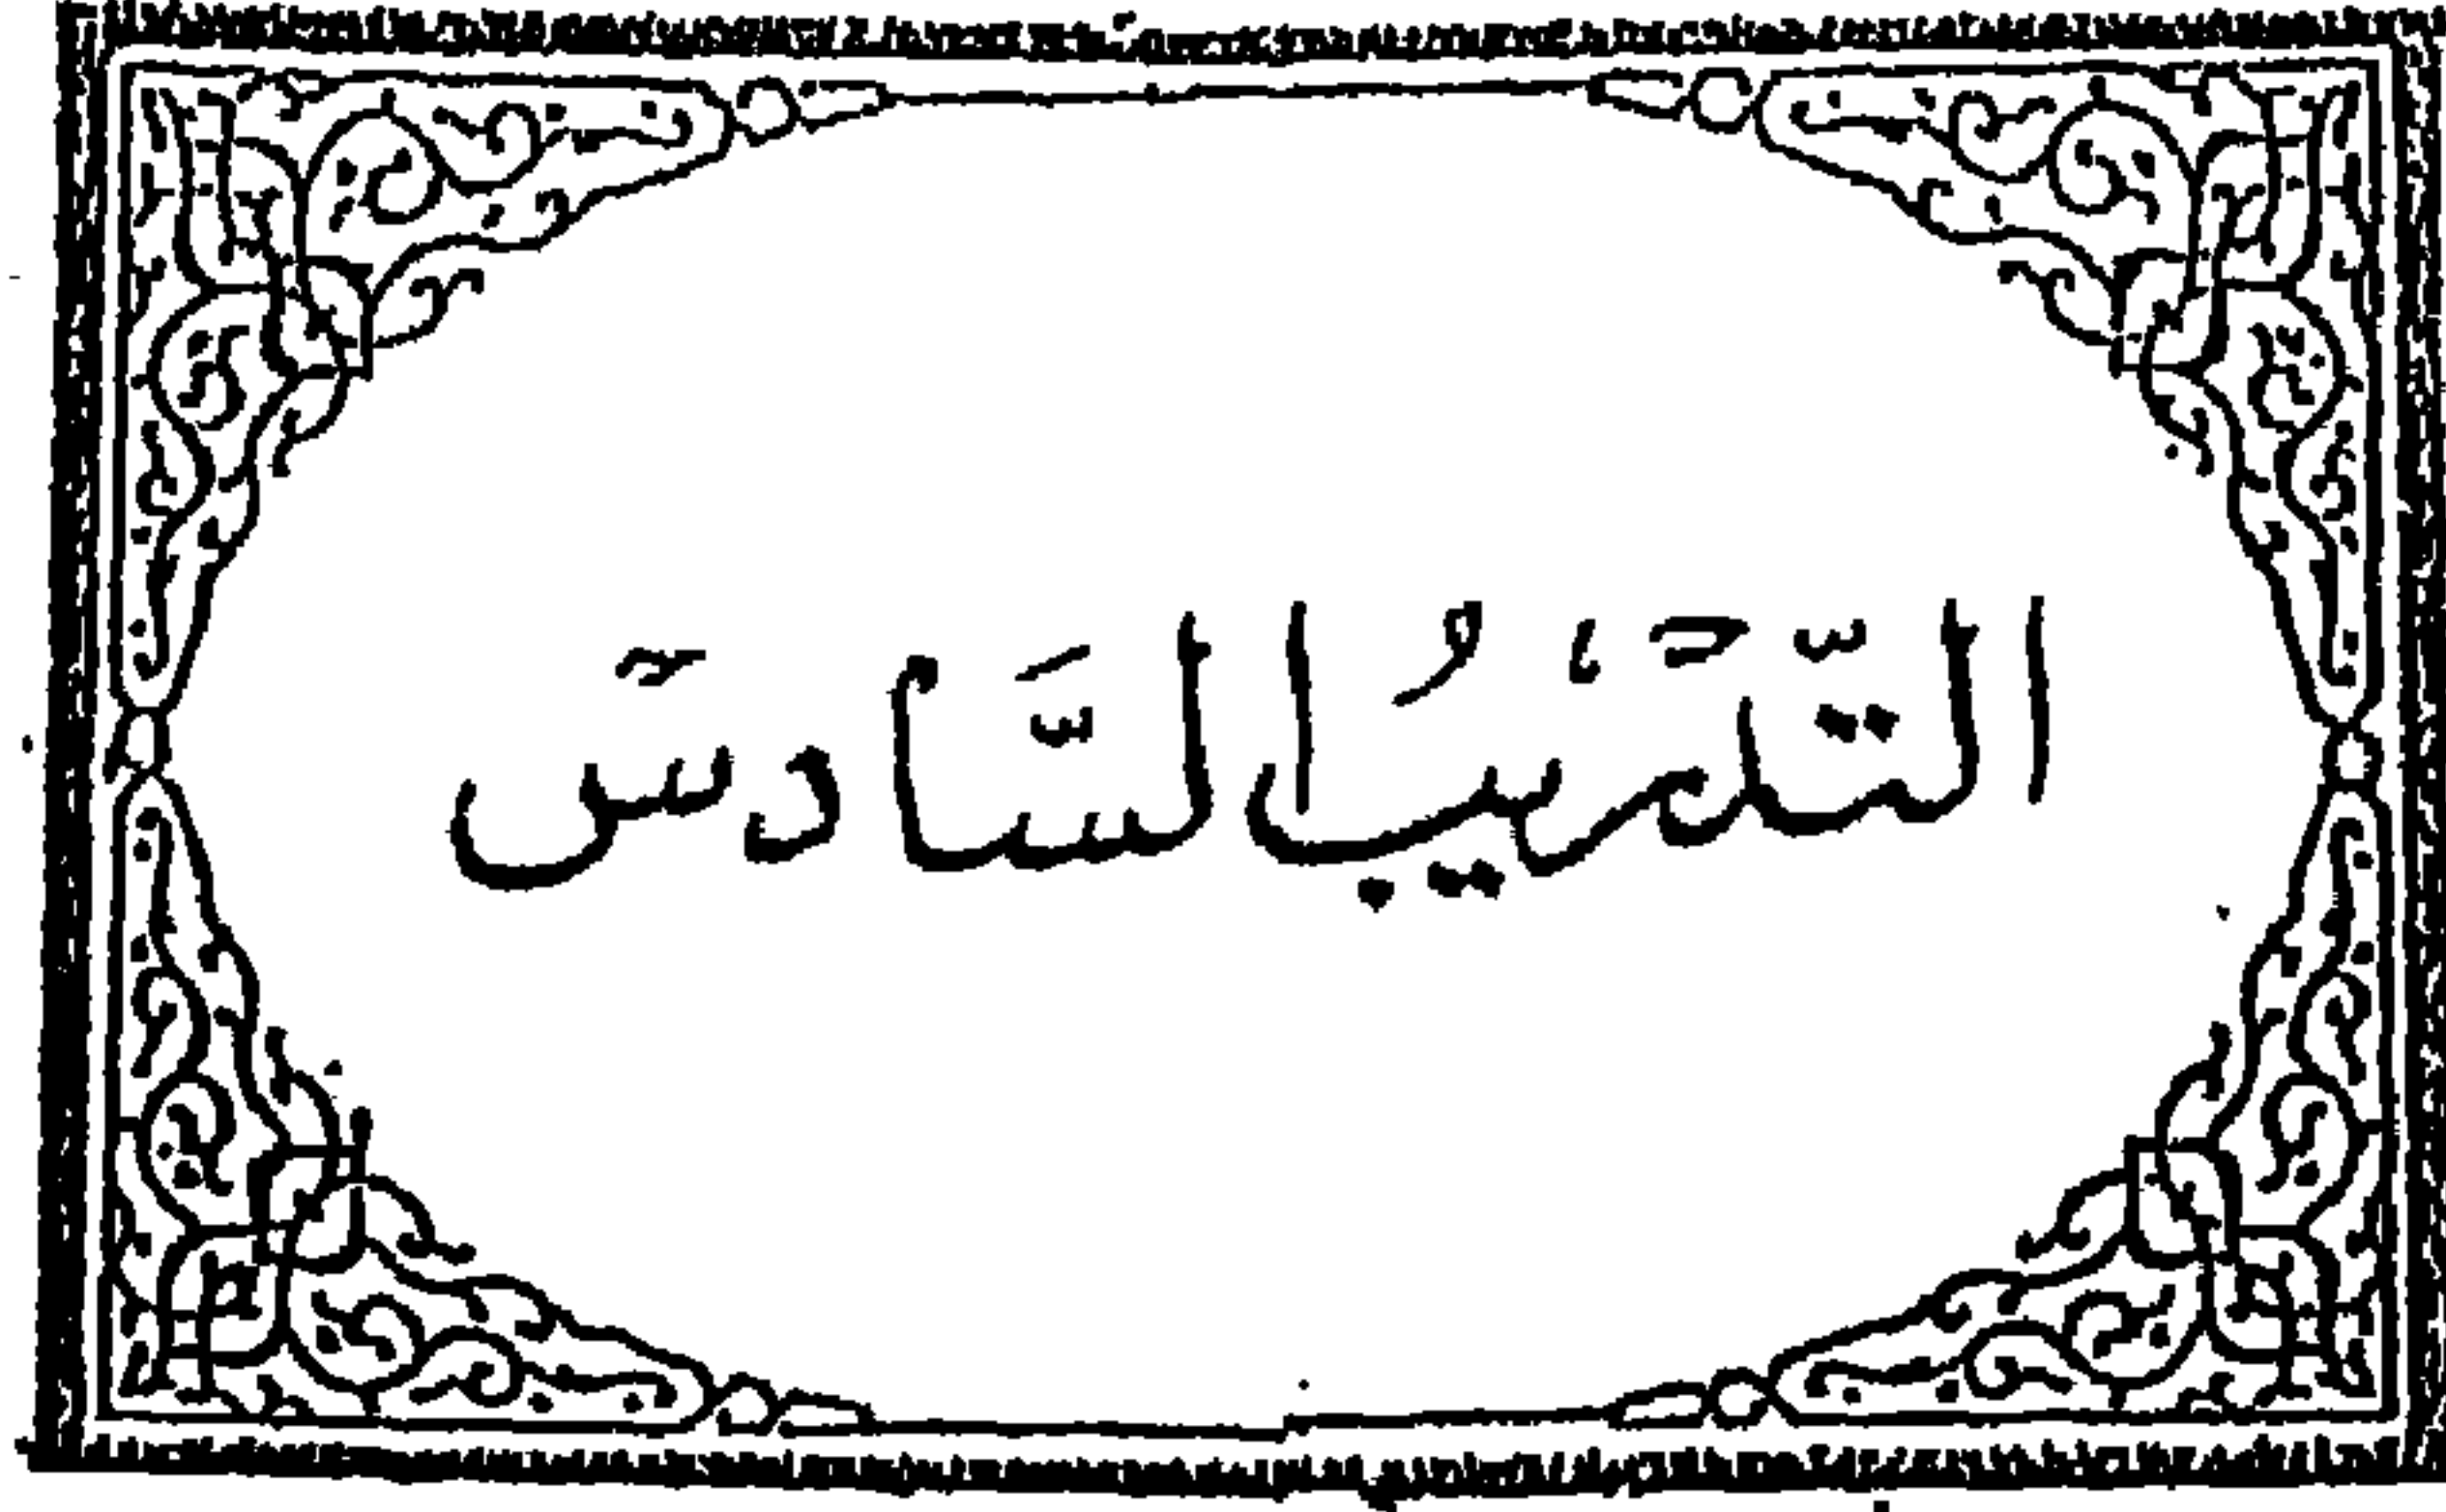 التّدريبُ السَّادس